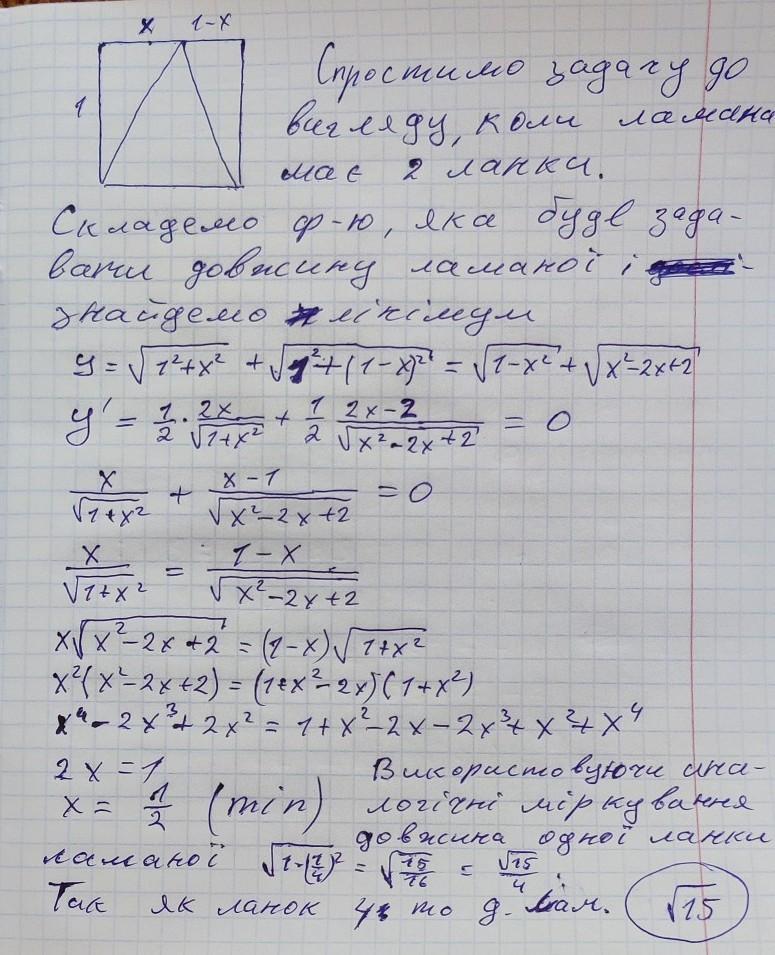 x 1-x
1
Спростимо задачу до
вигляду, коли ламана
має 2 ланки.
Складемо ф-ю, яка буде зада-
вати довжину ламаної і
знайдемо мінімум
y = √(1²+x²) + √(1²+(1-x)²) = √(1-x²) + √(x²-2x+2)
y' = 1/2 · 2x/√(1+x²) + 1/2 (2x-2)/√(x²-2x+2) = 0
x/√(1+x²) + (x-1)/√(x²-2x+2) = 0
x/√(1+x²) = (1-x)/√(x²-2x+2)
x√(x²-2x+2) = (1-x)√(1+x²)
x²(x²-2x+2) = (1+x²-2x)(1+x²)
x⁴-2x³+2x² = 1+x²-2x-2x³+x²+x⁴
2x=1
x = 1/2 (min)
Використовуючи ана-
логічні міркування
довжина одної ланки
ламаної √(1-(1/4)²) = √(15/16) = √15/4.
Так як ланок 4, то д. лам. √15